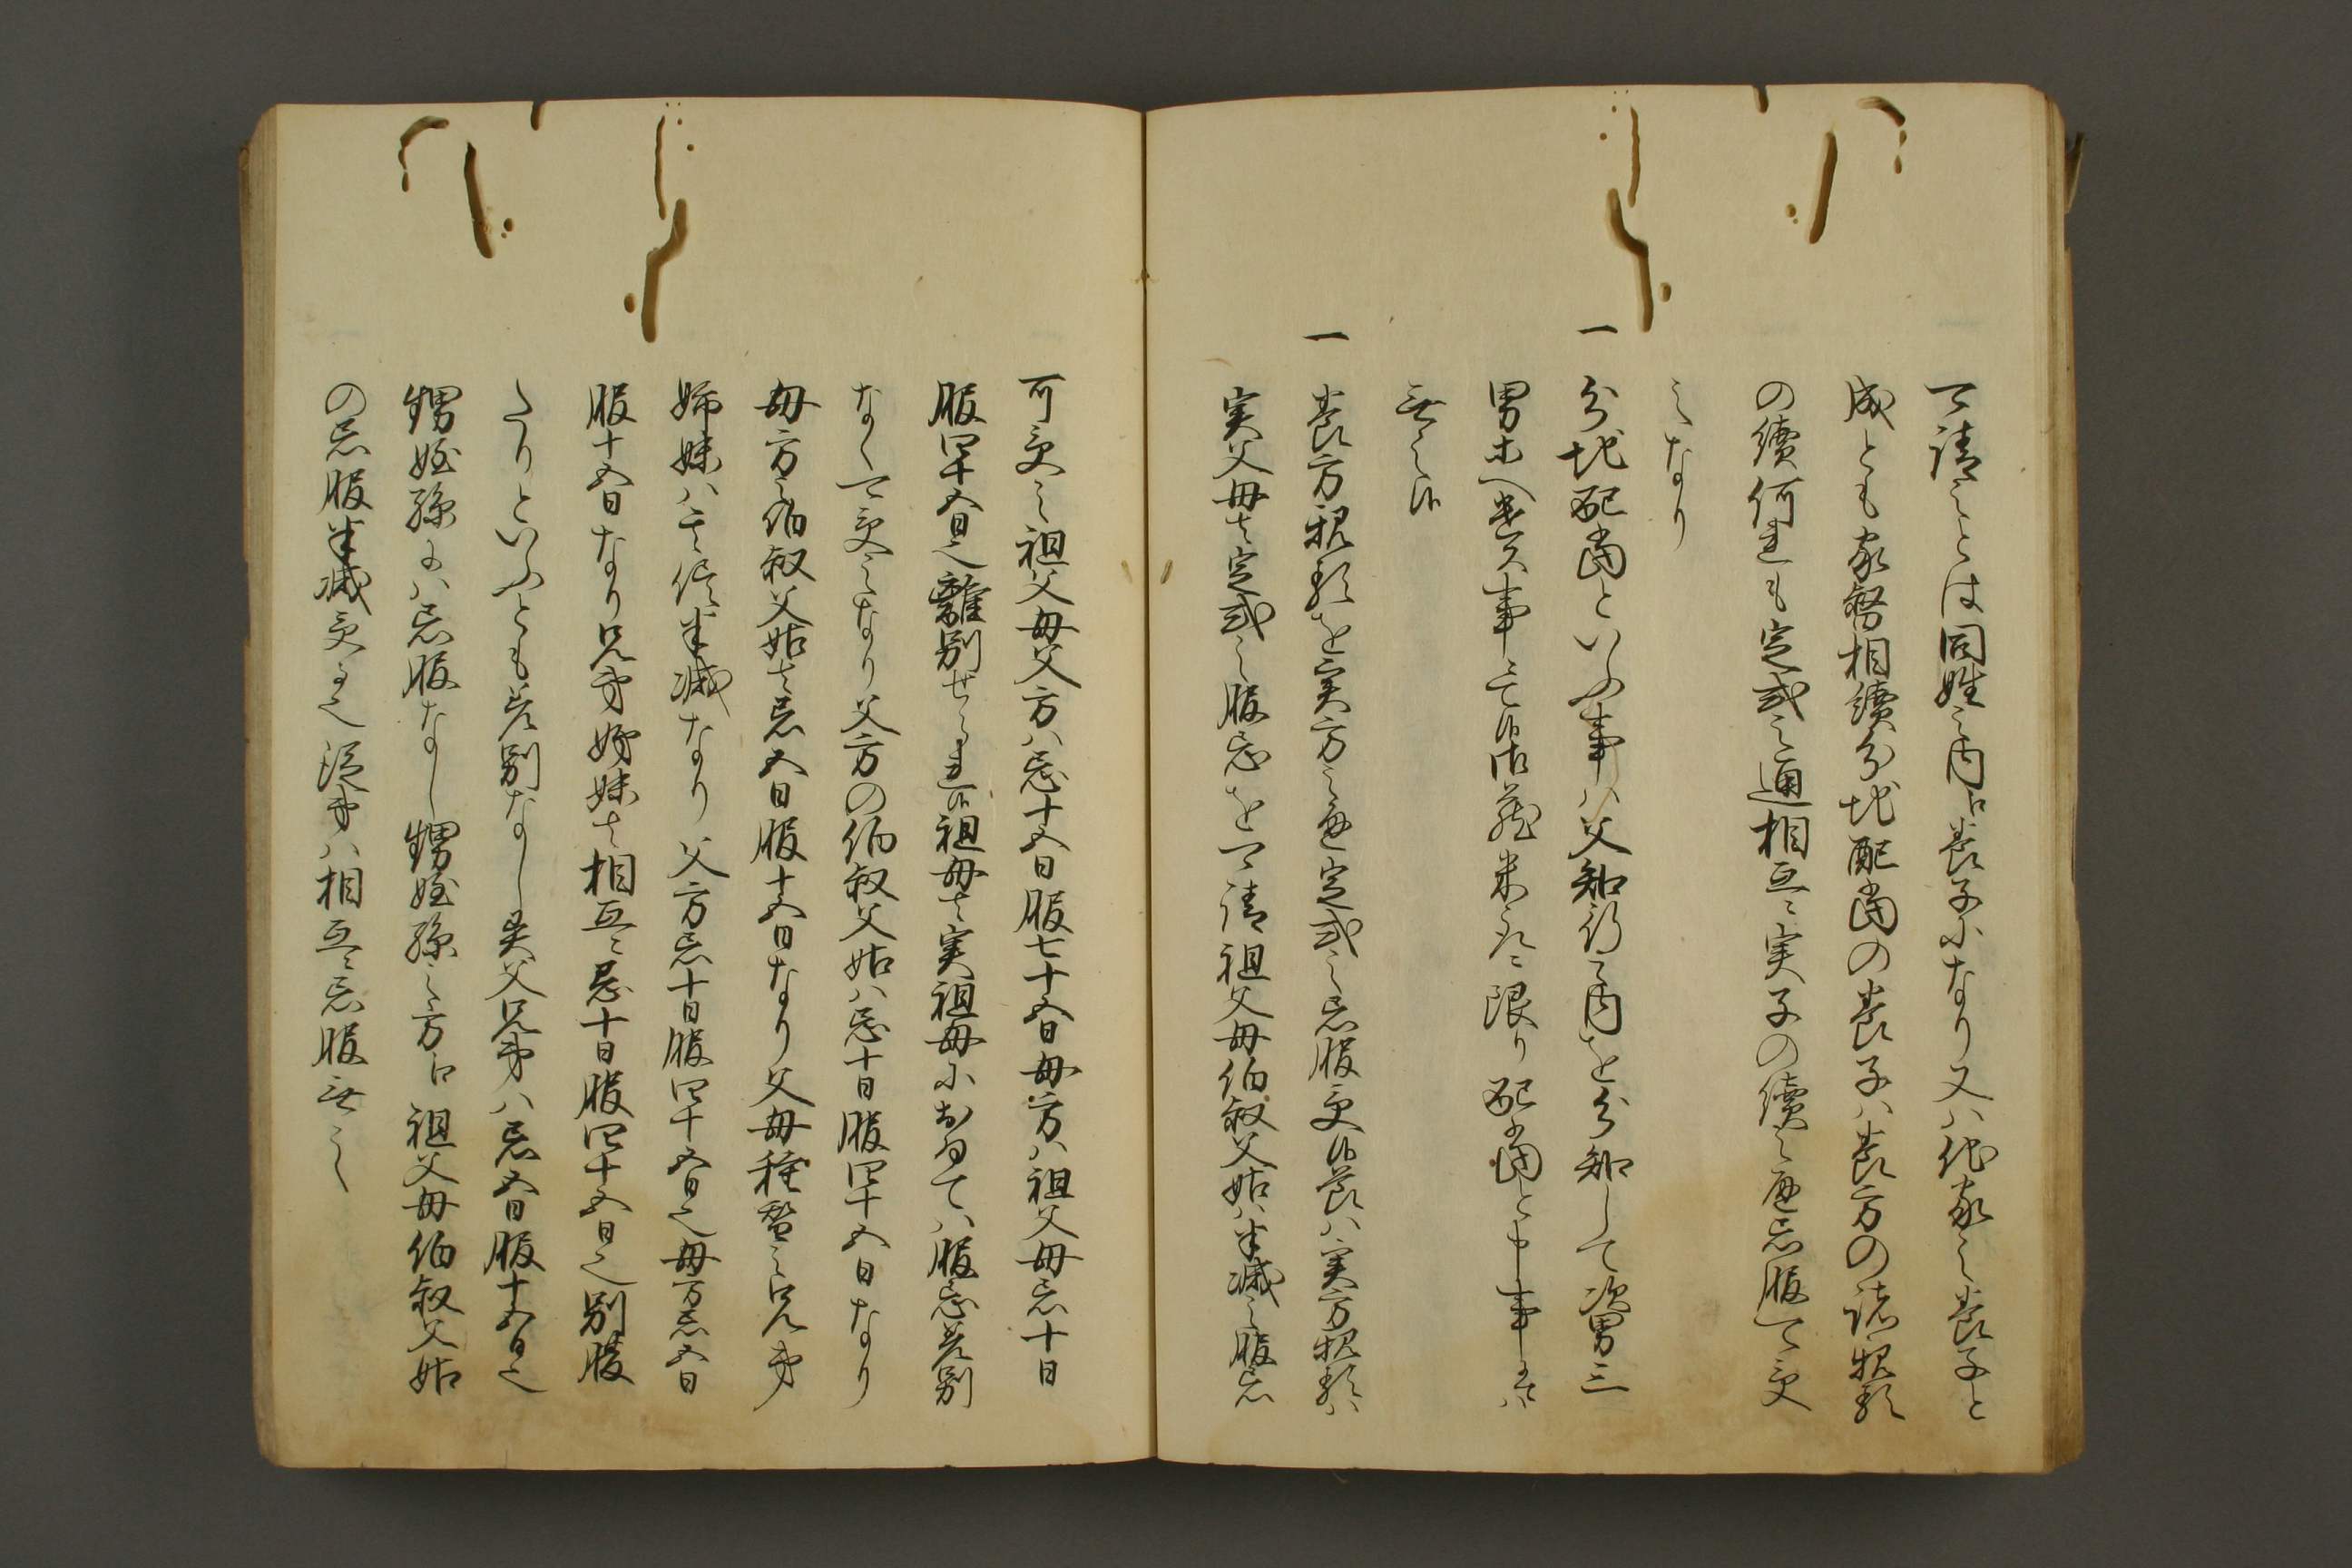 可請之とは同姓之内ゟ養子になり又ハ他家之養子と
成とも家督相続分地配當の養子ハ養方の諸親類
の續何連も定式之通相互ニ実子の續之通忌服可受
之なり
一 分地配當といふ事ハ父知行之内を分知して次男三
男ホへ遣ス事ニ而候御蔵米ニ限り配當と申事ニ而ハ
無之候
一 養方親類を実方之通定式之忌服受候ハ実方親類ハ
実父母者定式之服忌を可請祖父母伯叔父姑ハ半減之服忌
可受之祖父母父方ハ忌十五日服七十五日母方ハ祖父母忌十日
服四十五日之離別せられ候祖母者実祖母におゐてハ服忌差別
なく可受之なり父方の伯叔父姑ハ忌十日服四十五日なり
母方之伯叔父姑者忌五日服十五日なり父母種替之兄弟
姉妹ハ其侭半減なり父方忌十日服四十五日之母方忌五日
服十五日なり兄弟姉妹者相互ニ忌十日服四十五日之別腹
たりといふとも差別なし異父兄弟ハ忌五日服十五日之
甥姪孫ニハ忌服なし甥姪孫之方ゟ祖父母伯叔父姑
の忌服半減受る之従弟ハ相互ニ忌服無之